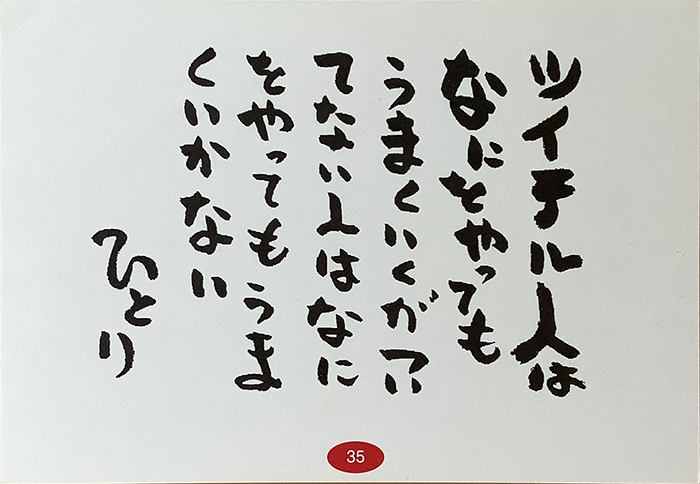 ツイテル人は
なにをやっても
うまくいくがつい
てない人はなに
をやってもうま
くいかない
ひとり
35